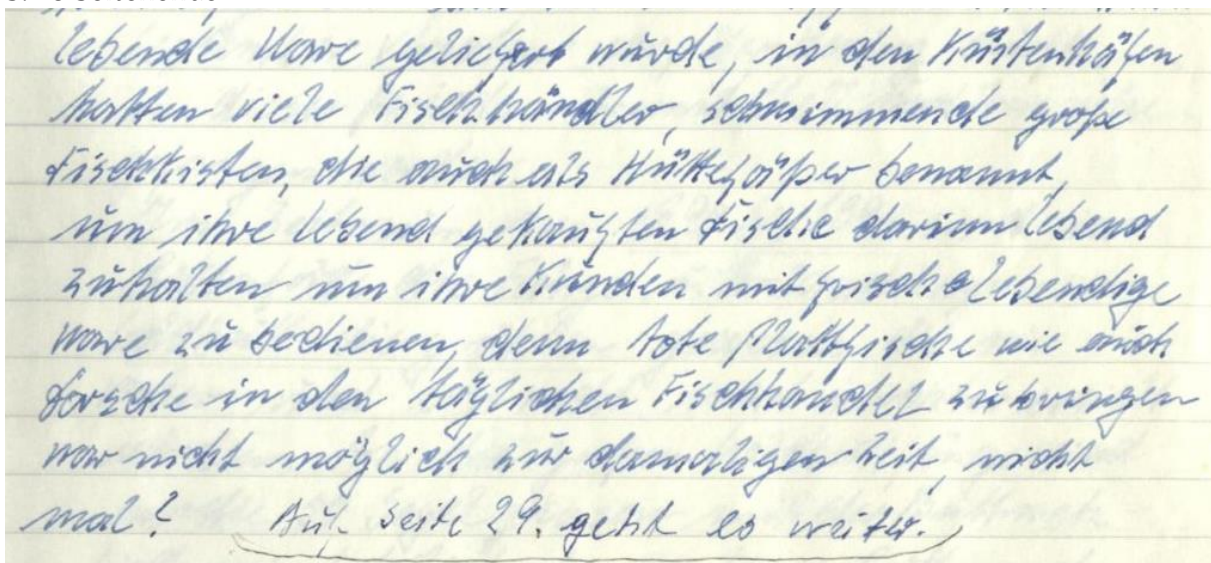 lebende Ware geliefert wurde, in den Küstenhäfen
hatten viele Fischhändler, schwimmende große
Fischkisten, die auch als Hüttefäßer benannt,
um ihre lebend gekauften Fische darinn lebend
zuhalten um ihre Kunden mit frische lebendige
Ware zu bedienen, denn tote Plattfische wie auch
Dorsche in den täglichen Fischhandel zu bringen
war nicht möglich zur damaligen Zeit, nicht
mal? Auf Seite 29. geht es weiter.